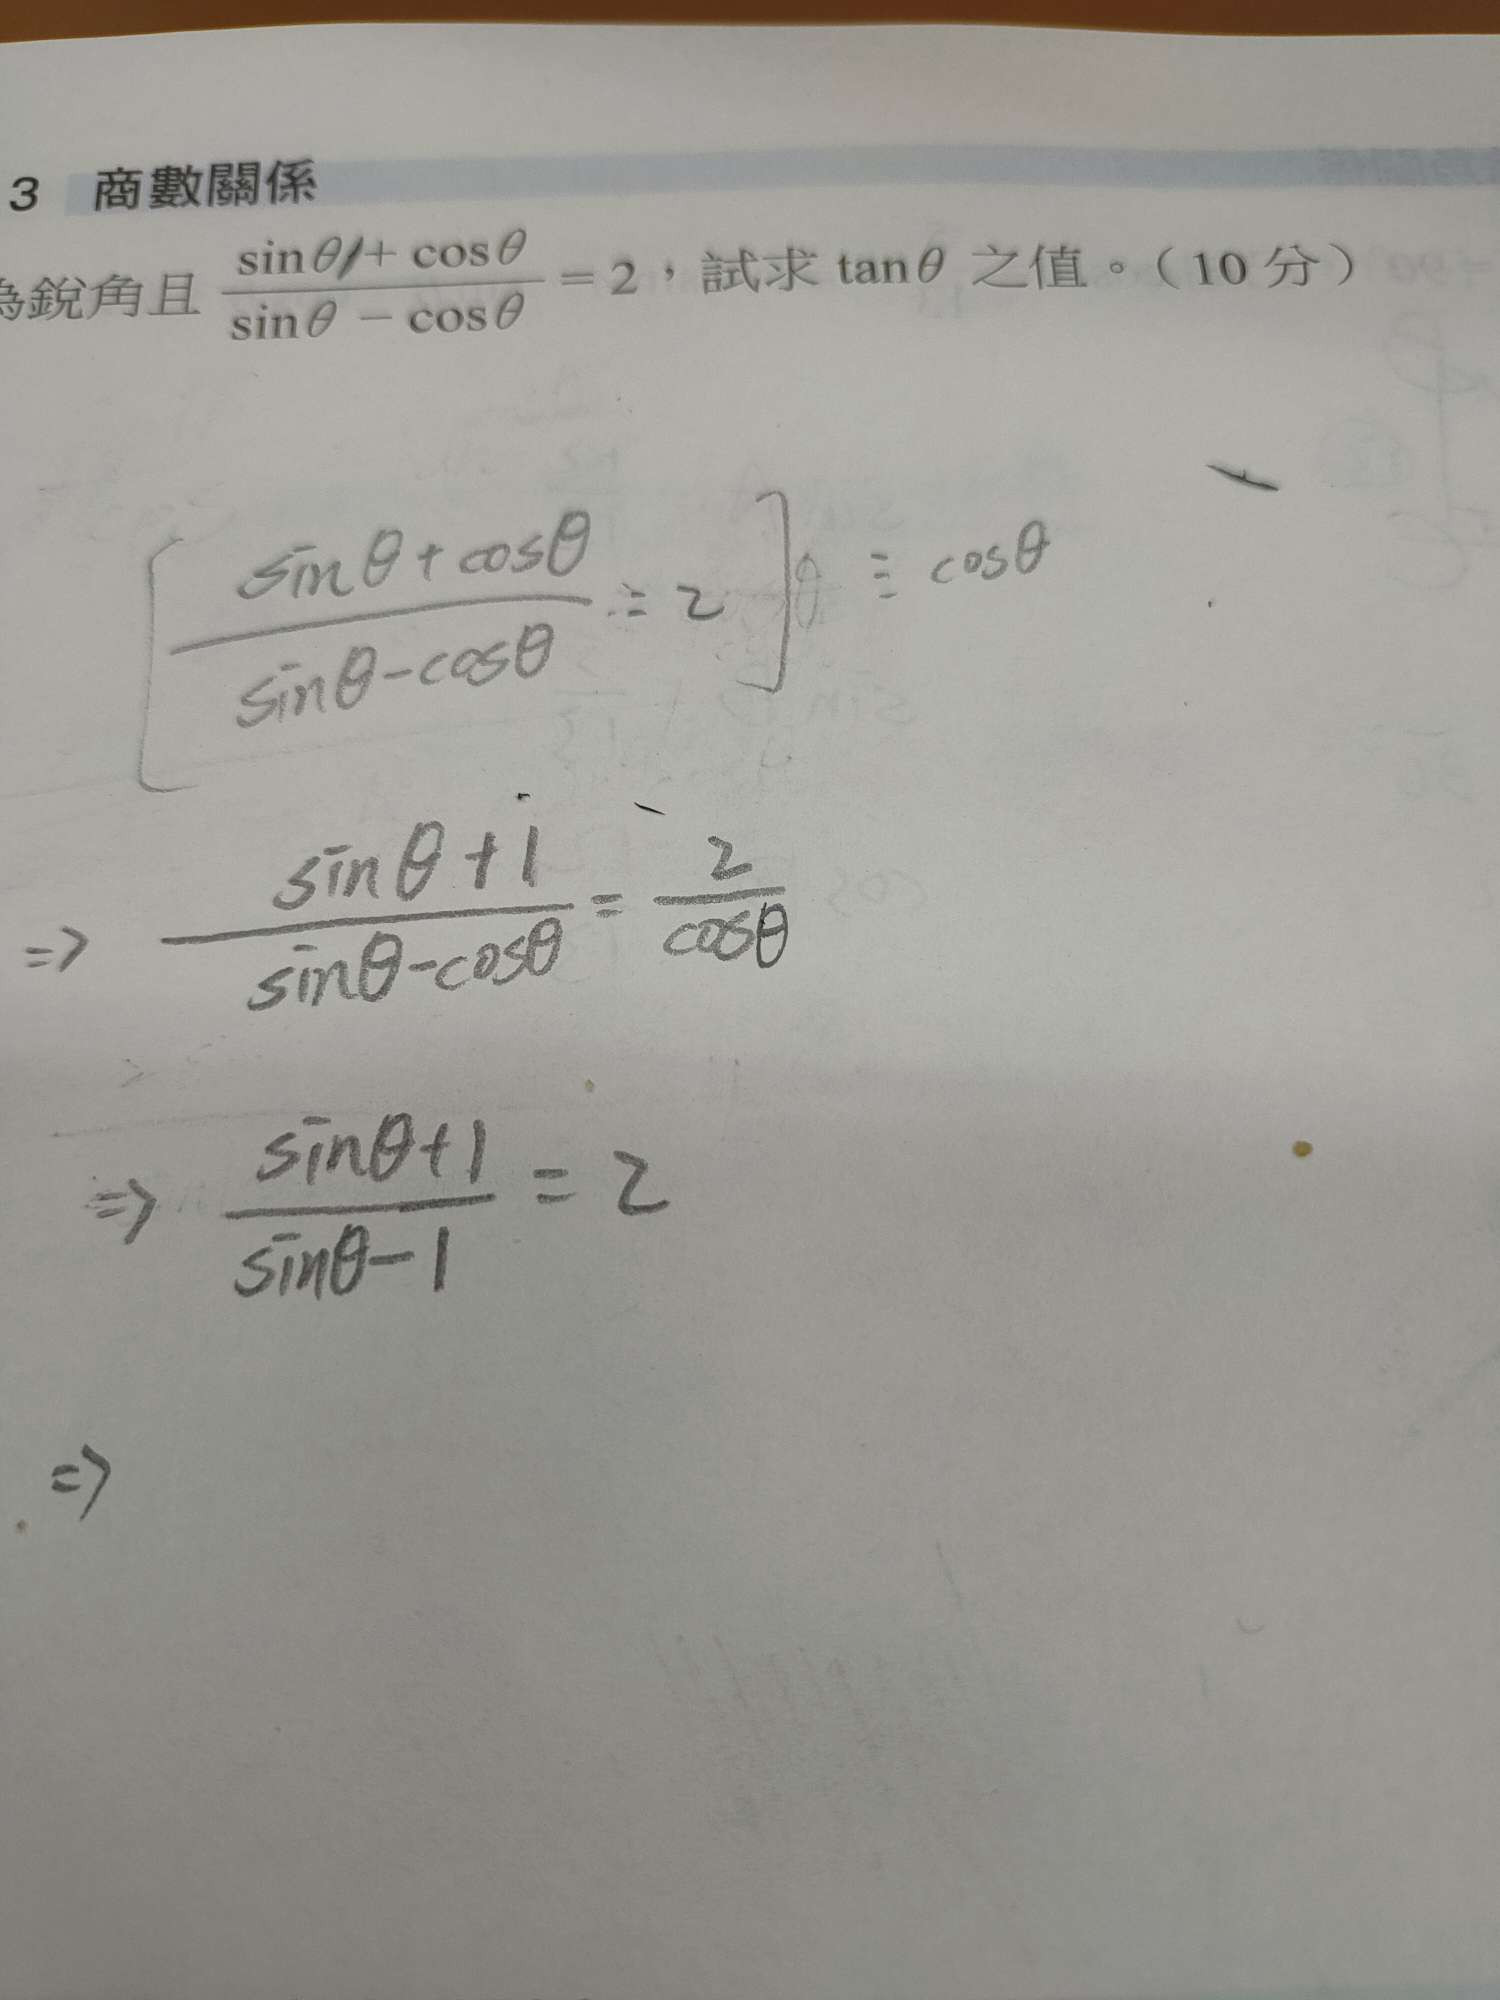 3 商數關係
為銳角且 \frac{sinθ + cosθ}{sinθ − cosθ} = 2，試求 tanθ 之值。（10 分）
[ \frac{sinθ+cosθ}{sinθ-cosθ} = 2 ] ÷ cosθ
=> \frac{sinθ+1}{sinθ-cosθ} = \frac{2}{cosθ}
=> \frac{sinθ+1}{sinθ-1} = 2
=>